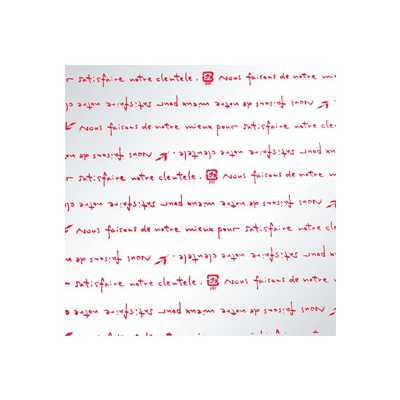 satisfaire notre clentele. プラ PP Nous faisons de notre mi
ux pour satisfaire notre cle
Nous faisons de notre mieux pour satisfaire notre cl
ux pour satisfaire notre clentele. Nous faisons de not
satisfaire notre clentele. プラ PP Nous faisons de notre m
Nous faisons de notre mieux pour satisfaire notre cle
Nous faisons de notre mieux pour satisfaire notre cl
ux pour satisfaire notre clentele. Nous faisons de n
satisfaire notre clentele. プラ PP Nous faisons de notre
Nous faisons de notre mieux pour satisfaire notre cle
Nous faisons de notre mieux pour satisfaire notre c